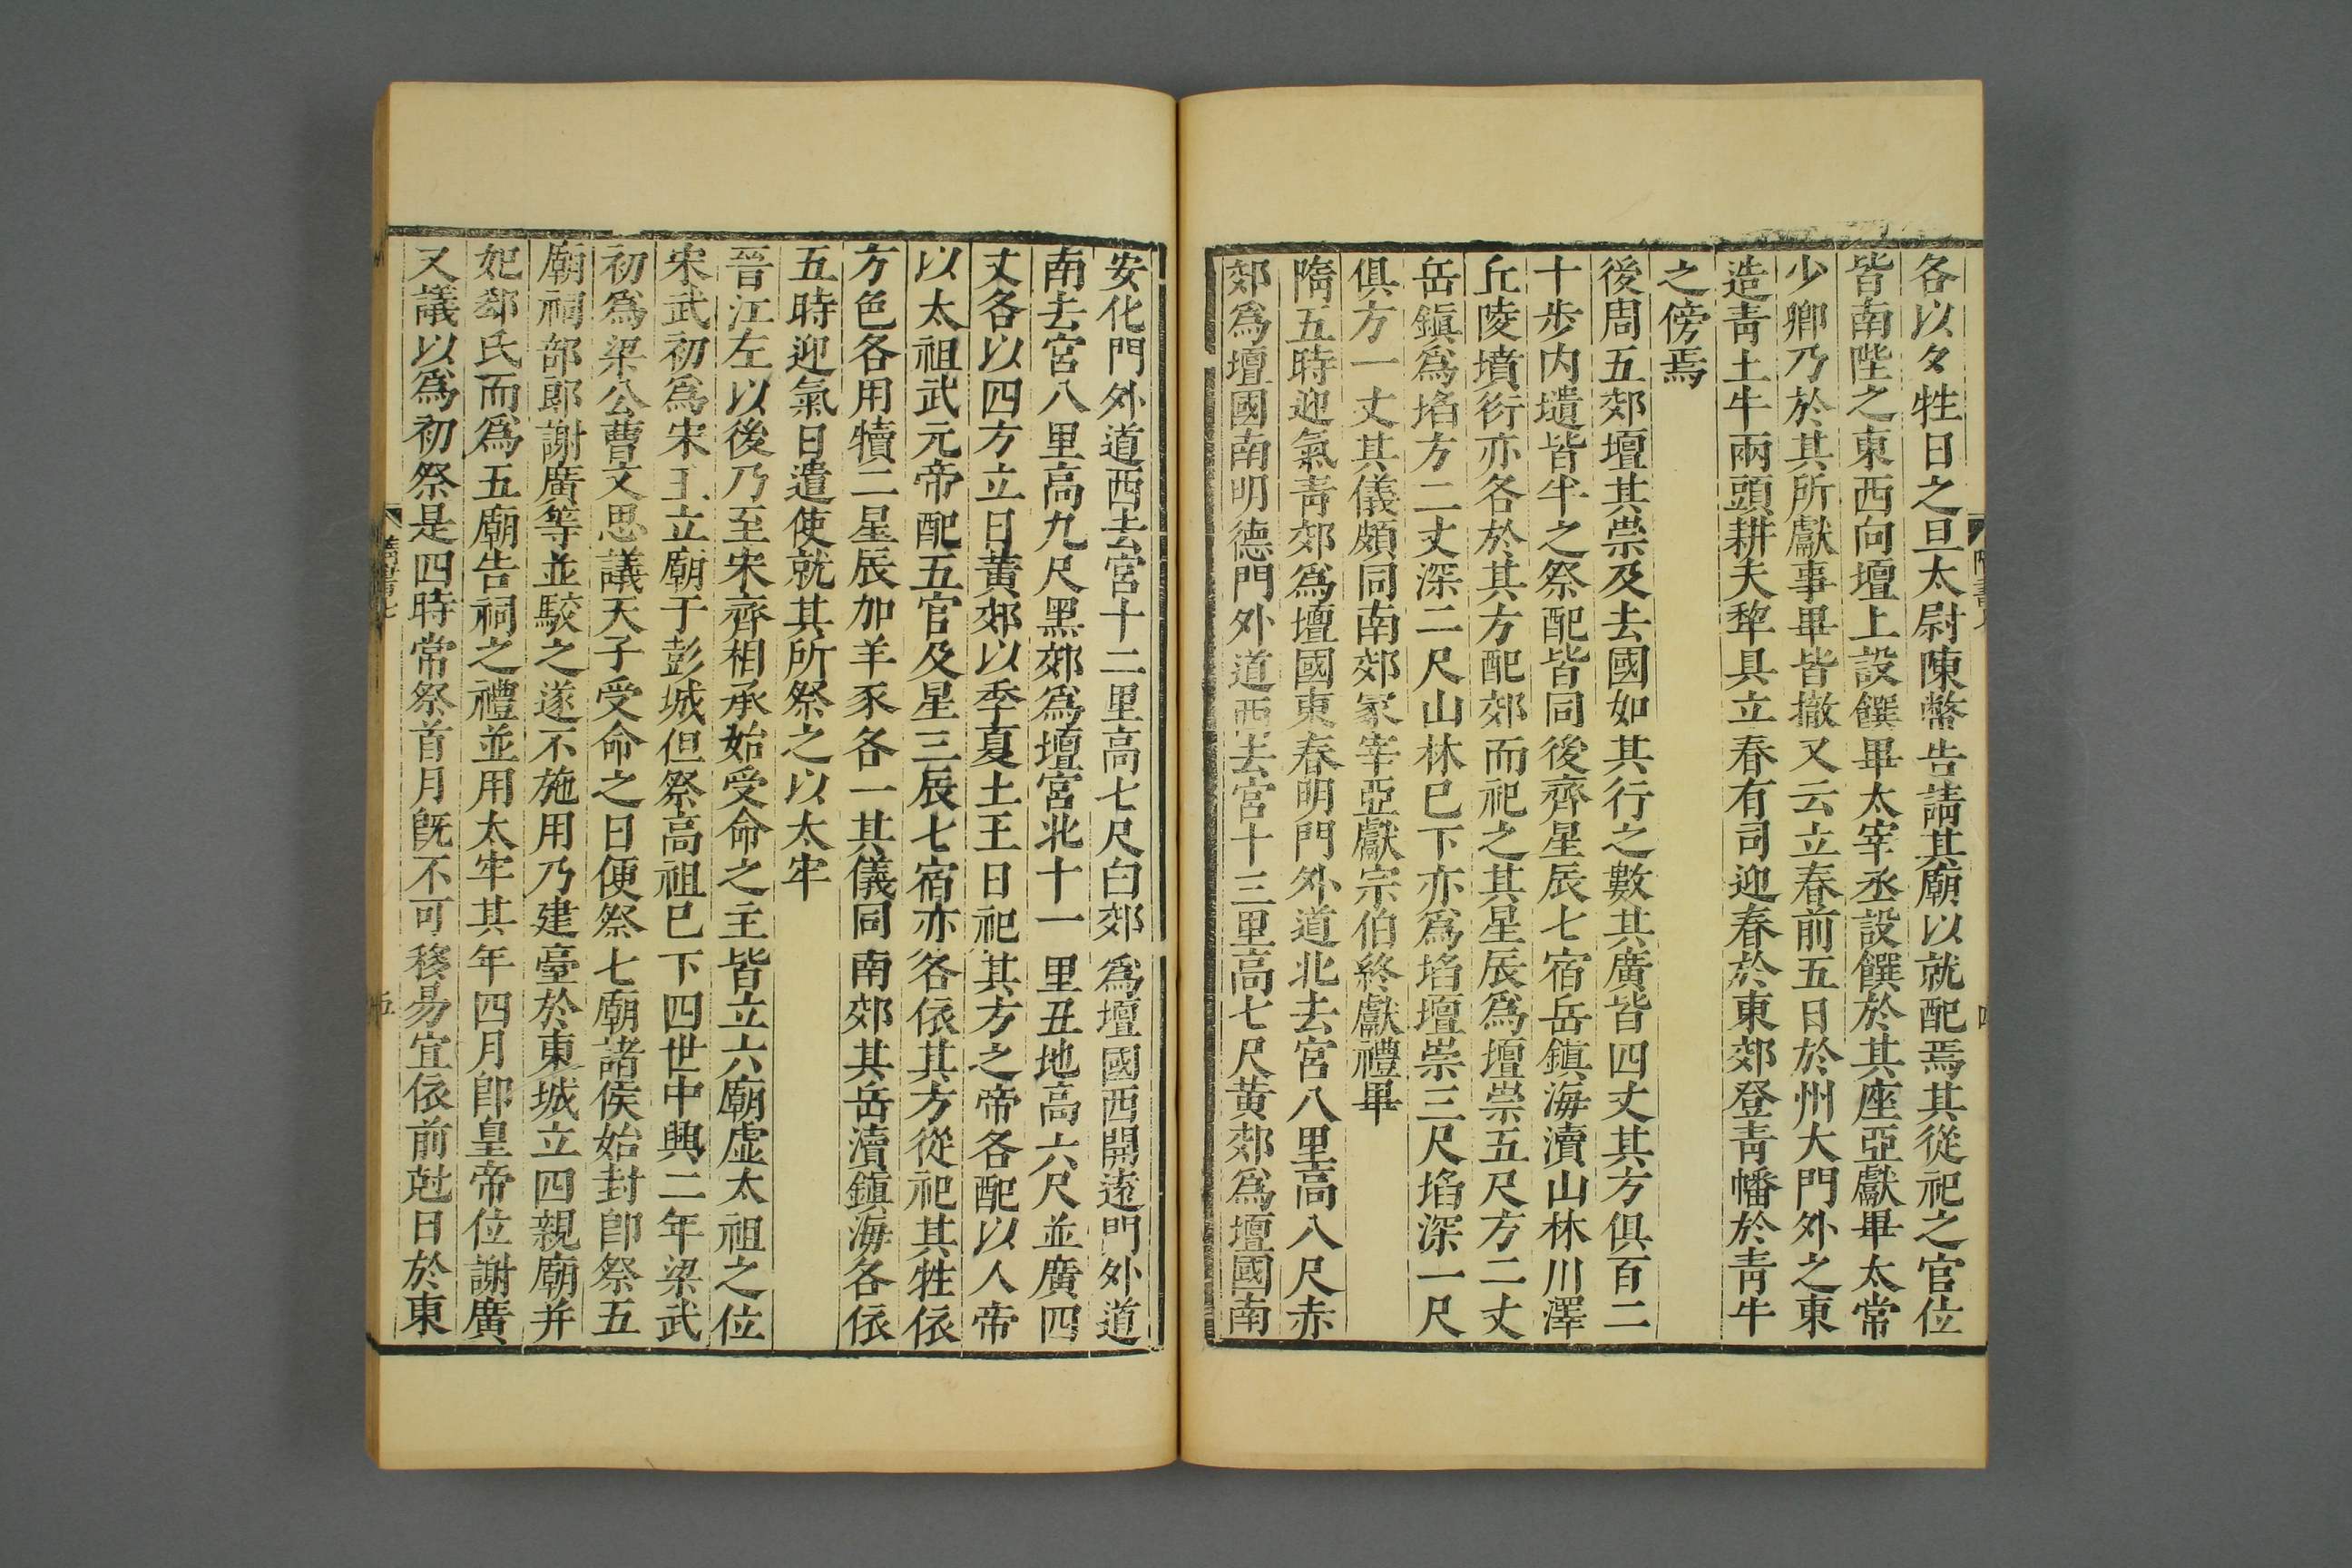 各以夕牲日之旦太尉陳幣告請其廟以就配焉其從祀之官位
皆南陛之東西向壇上設饌畢太宰丞設饌於其座亞獻畢太常
少卿乃於其所獻事畢皆撤又云立春前五日於州大門外之東
造青土牛兩頭耕夫犂具立春有司迎春於東郊登青幡於青牛
之傍焉
後周五郊壇其崇及去國如其行之數其廣皆四丈其方俱百二
十步内壝皆半之祭配皆同後齊星辰七宿岳鎮海瀆山林川澤
丘陵墳衍亦各於其方配郊而祀之其星辰爲壇崇五尺方二丈
岳鎮爲埳方二丈深二尺山林已下亦爲埳壇崇三尺埳深一尺
俱方一丈其儀頗同南郊冢宰亞獻宗伯終獻禮畢
隋五時迎氣青郊爲壇國東春明門外道北去宮八里高八尺赤
郊爲壇國南明德門外道西去宮十三里高七尺黄郊爲壇國南
安化門外道西去宮十二里高七尺白郊爲壇國西開遠門外道
南去宮八里高九尺黑郊爲壇宮北十一里丑地高六尺並廣四
丈各以四方立日黄郊以季夏土王日祀其方之帝各配以人帝
以太祖武元帝配五官及星三辰七宿亦各依其方從祀其牲依
方色各用犢二星辰加羊豕各一其儀同南郊其岳瀆鎮海各依
五時迎氣日遣使就其所祭之以太牢
晉江左以後乃至宋齊相承始受命之主皆立六廟虛太祖之位
宋武初爲宋王立廟于彭城但祭高祖已下四世中興二年梁武
初爲梁公曹文思議天子受命之日便祭七廟諸侯始封即祭五
廟祠部郎謝廣等並駮之遂不施用乃建臺於東城立四親廟并
妃郄氏而爲五廟告祠之禮並用太牢其年四月即皇帝位謝廣
又議以爲初祭是四時常祭首月既不可移易宜依前尅日於東
五